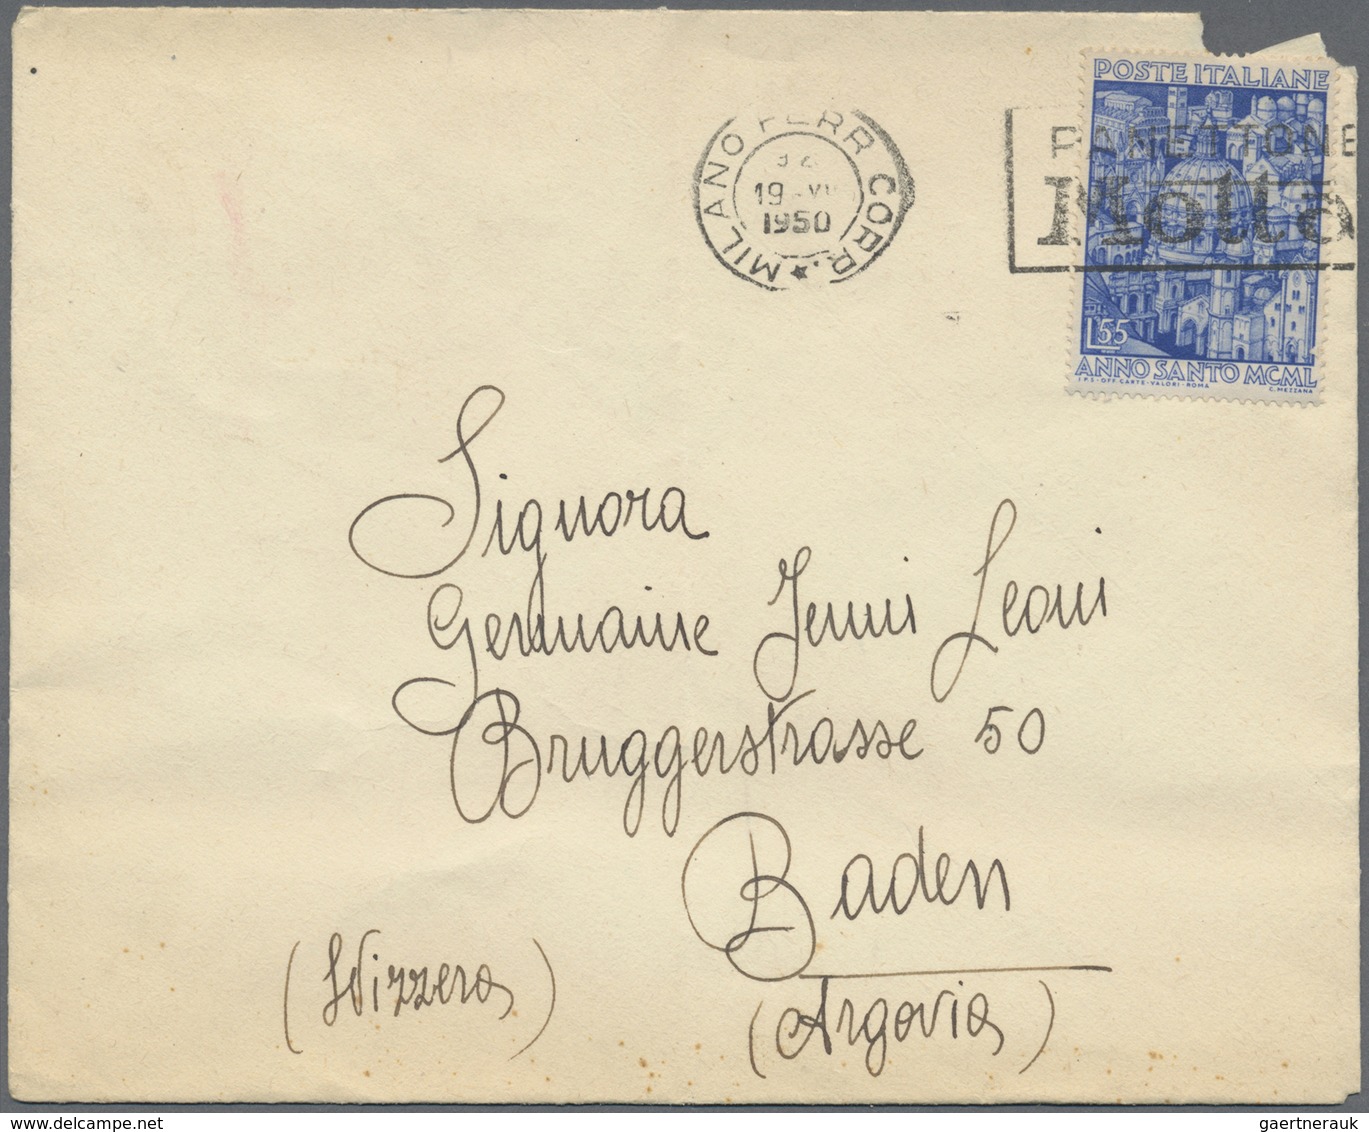 POSTE ITALIANE
MILANO FERR. CORR.
19 - VII
1950
PANETTONE
Motta
L. 55
ANNO SANTO MCML
I.P.S - OFF. CARTE - VALORI - ROMA
C. MEZZANA
Signora
Germaine Jenni Leoni
Bruggerstrasse 50
Baden
(Svizzera)
(Argovia)
gaertnerauk